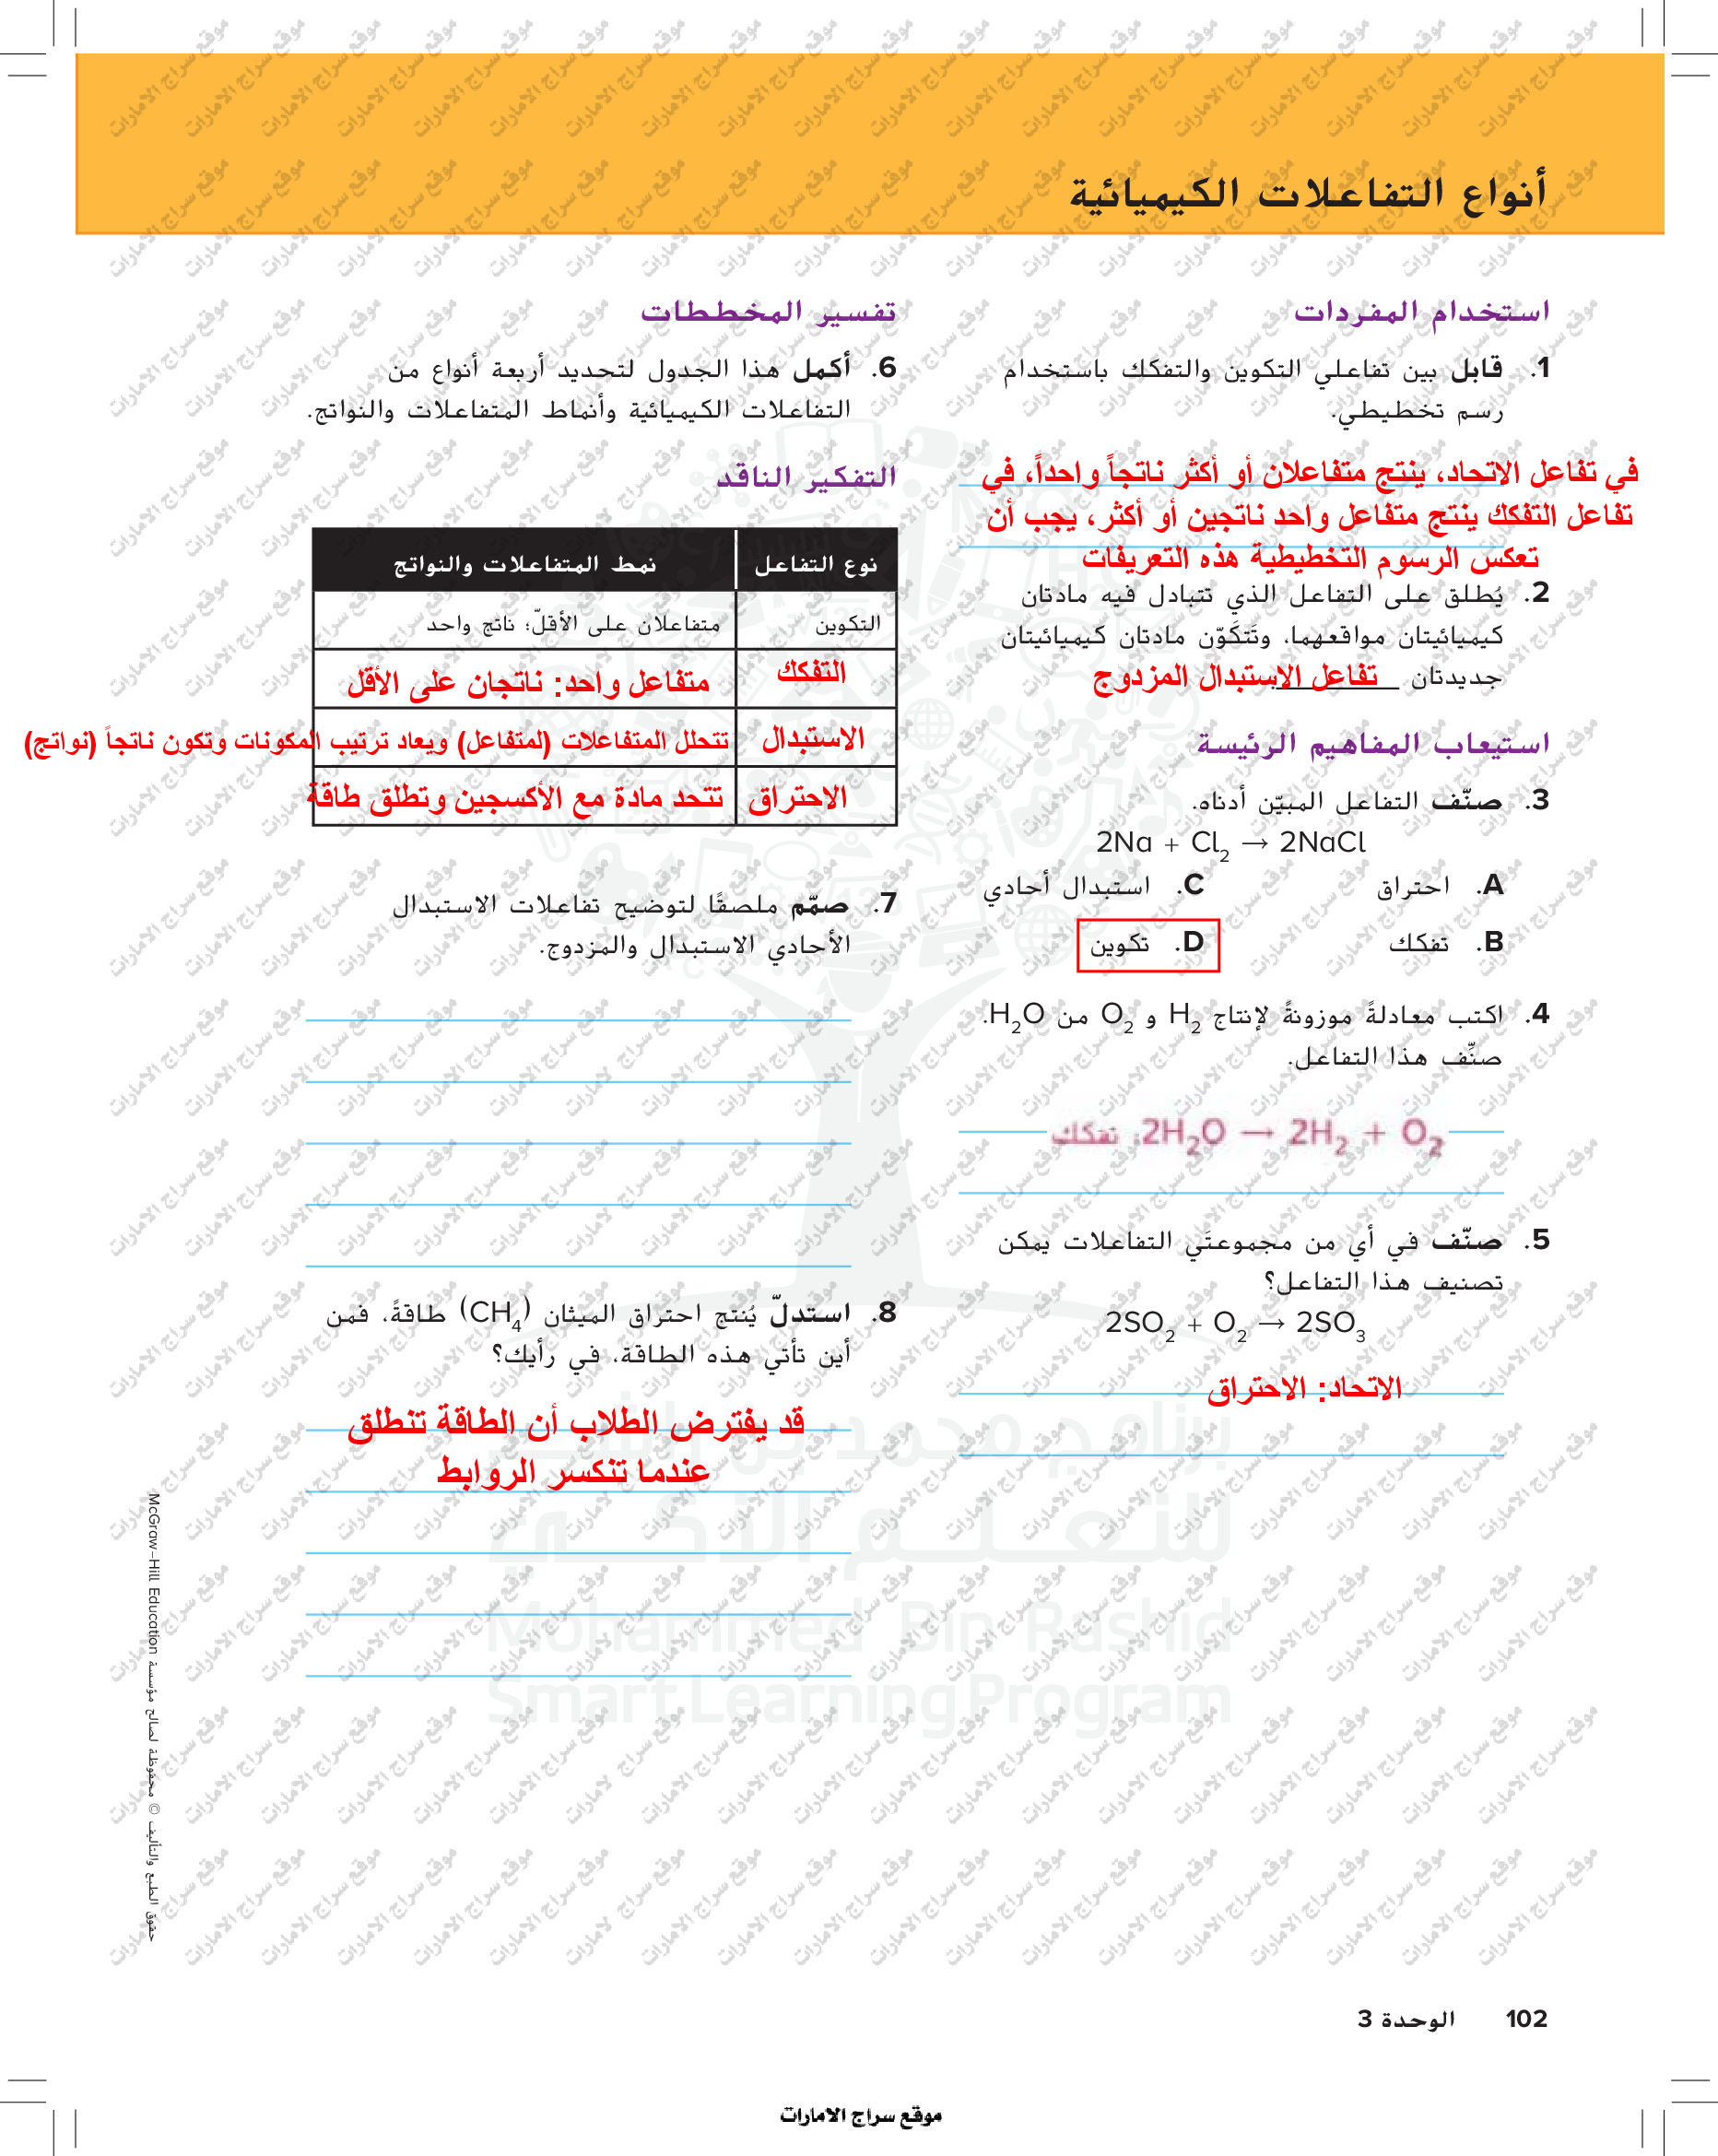 أنواع التفاعلات الكيميائية
استخدام المفردات
1. قابل بين تفاعلي التكوين والتفكك باستخدام
رسم تخطيطي.
في تفاعل الاتحاد، ينتج متفاعلان أو أكثر ناتجاً واحداً، في
تفاعل التفكك ينتج متفاعل واحد ناتجين أو أكثر، يجب أن
تعكس الرسوم التخطيطية هذه التعريفات
2. يُطلق على التفاعل الذي تتبادل فيه مادتان
كيميائيتان مواقعهما، وتَتكَوّن مادتان كيميائيتان
جديدتان تفاعل الاستبدال المزدوج
استيعاب المفاهيم الرئيسة
3. صنّف التفاعل المبيّن أدناه.
2Na + Cl₂ → 2NaCl
A. احتراق C. استبدال أحادي
B. تفكك D. تكوين
4. اكتب معادلةً موزونةً لإنتاج H₂ و O₂ من H₂O.
صنِّف هذا التفاعل.
2H₂O → 2H₂ + O₂: تفكك
5. صنّف في أي من مجموعتَي التفاعلات يمكن
تصنيف هذا التفاعل؟
2SO₂ + O₂ → 2SO₃
الاتحاد: الاحتراق
تفسير المخططات
6. أكمل هذا الجدول لتحديد أربعة أنواع من
التفاعلات الكيميائية وأنماط المتفاعلات والنواتج.
التفكير الناقد
نوع التفاعل نمط المتفاعلات والنواتج
التكوين متفاعلان على الأقلّ؛ ناتج واحد
التفكك متفاعل واحد: ناتجان على الأقل
الاستبدال تتحلل المتفاعلات (لمتفاعل) ويعاد ترتيب المكونات وتكون ناتجاً (نواتج)
الاحتراق تتحد مادة مع الأكسجين وتطلق طاقة
7. صمّم ملصقًا لتوضيح تفاعلات الاستبدال
الأحادي الاستبدال والمزدوج.
8. استدلّ يُنتج احتراق الميثان (CH₄) طاقةً، فمن
أين تأتي هذه الطاقة، في رأيك؟
قد يفترض الطلاب أن الطاقة تنطلق
عندما تنكسر الروابط
برنامج محمد بن راشد
للتعلم الذكي
Mohammed Bin Rashid
Smart Learning Program
حقوق الطبع والتأليف © محفوظة لصالح مؤسسة McGraw-Hill Education
102 الوحدة 3
موقع سراج الامارات